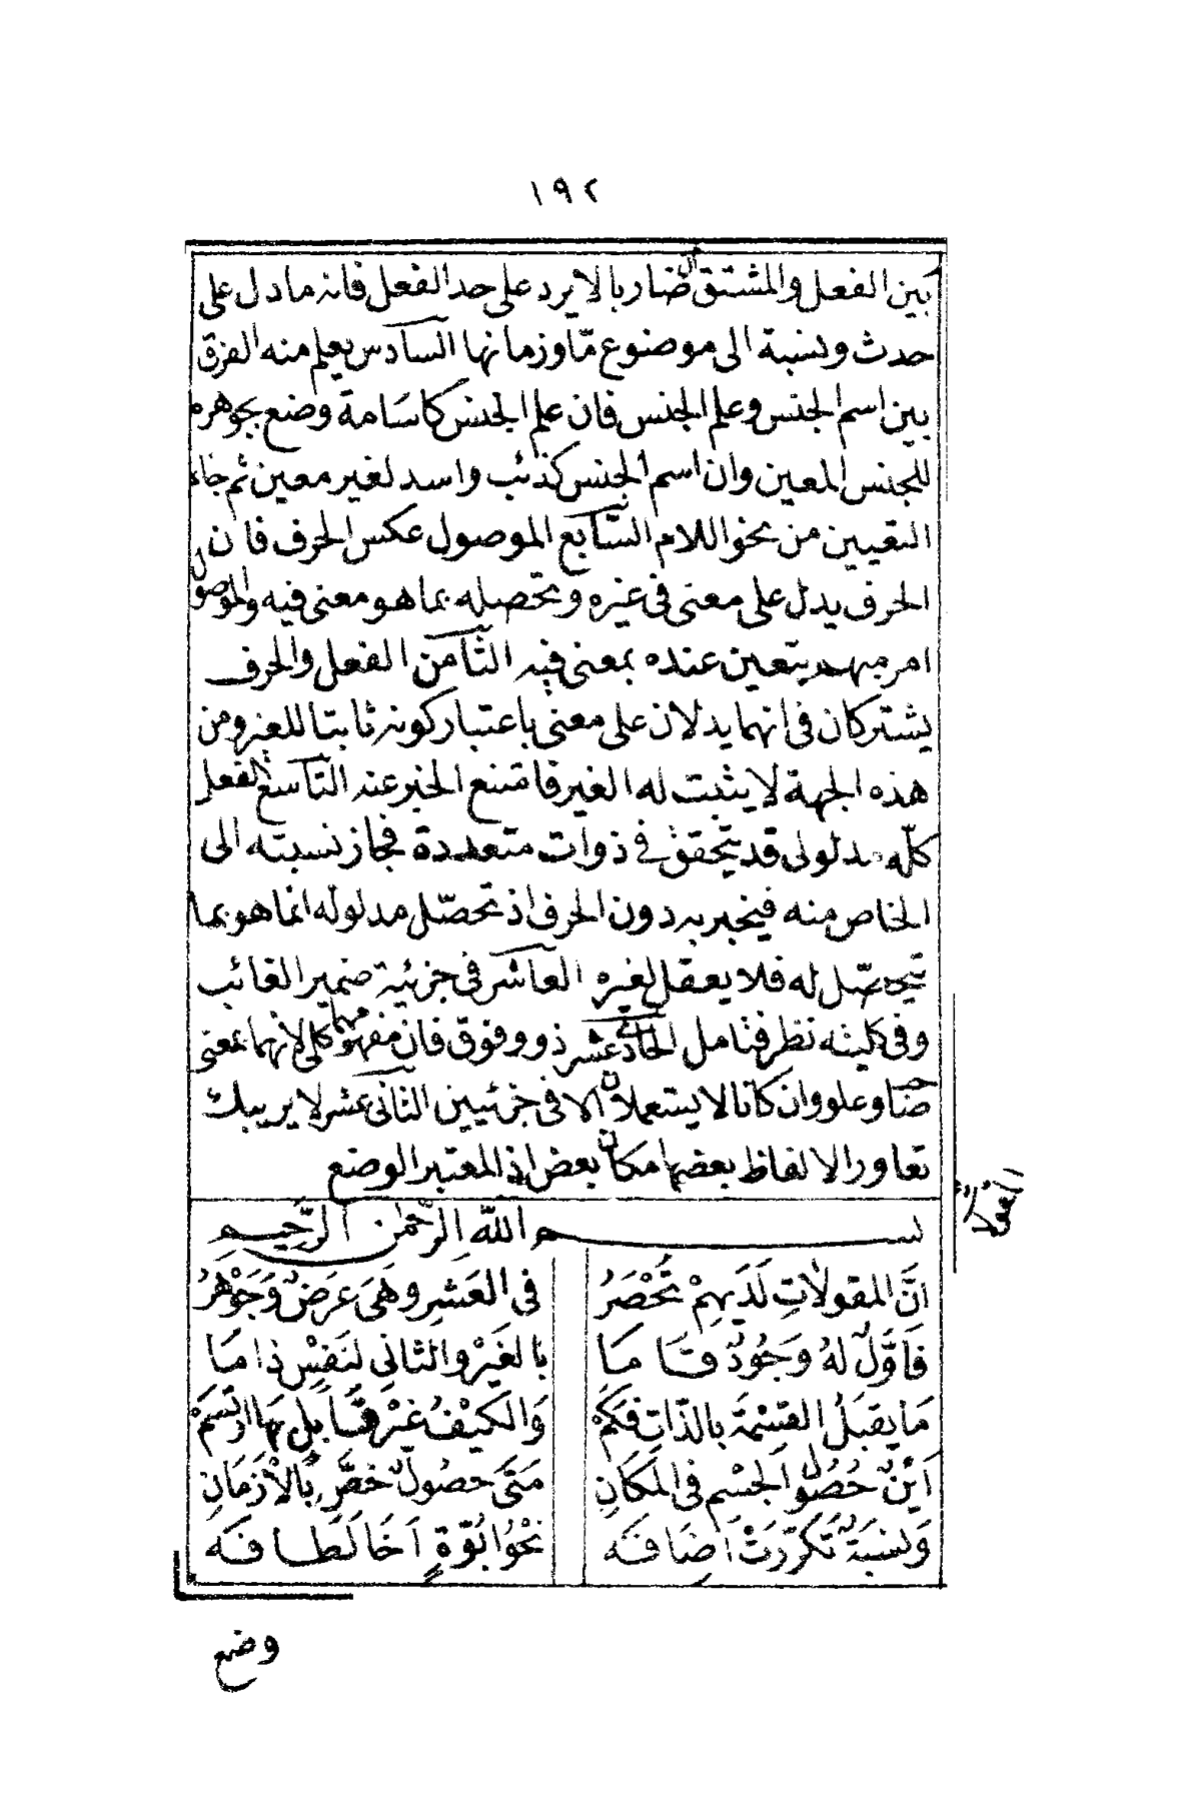 ١٩٢
بين الفعل والمشتق ان ضاربا لا يرد على حد الفعل فانه ما دل على
حدث ونسبة الى موضوع مّا وزمانها السادس يعلم منه الفرق
بين اسم الجنس وعلم الجنس فان علم الجنس كاسَامة وضع بجوهره
للجنس المعين وان اسم الجنس كذئب واسد لغير معين ثم جاء
التعيين من نحو اللام السّابع الموصول عكس الحرف فان
الحرف يدل على معنى فى غيره وتحصله بما هو معنى فيه والموصول
امر مبهم يتعين عنده بمعنى فيه الثامن الفعل والحرف
يشتركان فى انهما يدلان على معنى باعتبار كونه ثابتا للغير ومن
هذه الجهة لا يثبت له الغير فامتنع الخبر عنه التاسع الفعل
كلّه مدلولى قد يتحقق فى ذوات متعددة فجاز نسبته الى
الخاص منه فيخبر به دون الحرف اذ تحصّل مدلوله انما هو بما
يتحصّل له فلا يعقل لغيره العاشر فى جزئية ضمير الغائب
وفى كليته نظر فتامل الحادى عشر ذو وفوق فان مفهومهما كلى لانهما بمعنى
صَاحب وعلو وان كانا لا يستعملان الا فى جزئيين الثانى عشر لا يريبك
تعاور الالفاظ بعضها مكان بعض اذ المعتبر الوضع
المقولات
بسم الله الرحمن الرحيم
انَّ المقولاتِ لَدَيهِمْ تُحْصَرُ فى العَشرِ وهَىَ عَرَضٌ وَجَوْهَرُ
فَاوَّلٌ لهُ وَجُودٌ قَامَا بالغَيْرِ والثانى لنَفسٍ ذا مَا
مَا يقبَلُ القِسْمَةَ بالذّاتِ فكَمْ وَالكَيْفُ غَيْرُ قَابلٍ بهَا ارتسَمْ
اَيْنٌ حُصُولُ الجسْمِ فى المَكَانِ مَتىَ حصُولٌ خصَّ بالْازمَانِ
وَنسْبَةٌ تَكَرّرَتْ اضَافَه نحْوُ ابُوّةٍ اخَا لَطَافَه
وضع